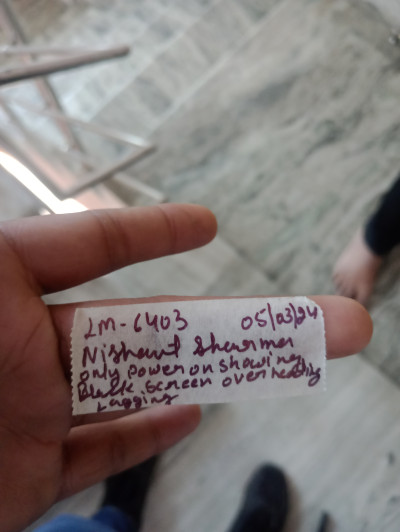 LM-6403 05/03/24
Nishant Sharma
only power on showing
Black screen overheating
Lagging